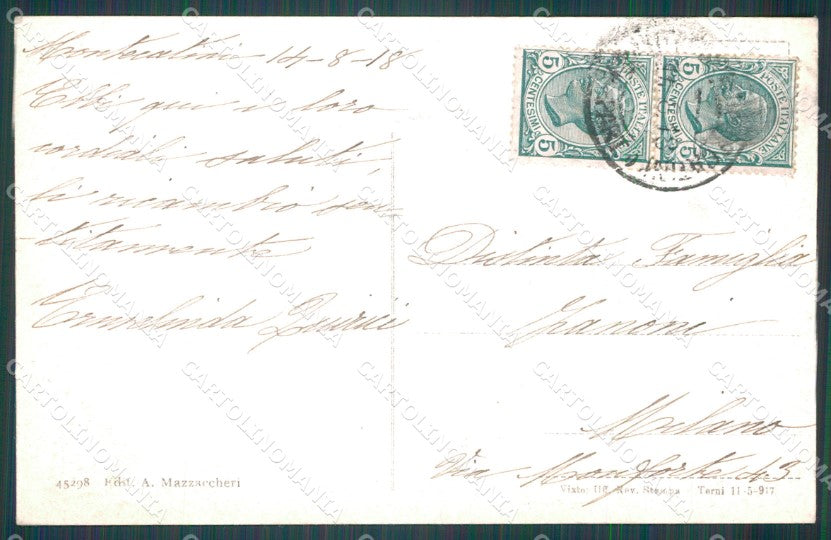 Montecatini 14-8-18
Ebbi qui i loro
cordiali saluti,
li ricambio sen
titamente
Ermelinda Quirici
Distinta Famiglia
Zanoni
Milano
Via Monforte 43
45298 Edit. A. Mazzaccheri
Visto: Uff. Rev. Stampa - Terni 11-5-917
5 CENTESIMI 5
POSTE ITALIANE
5 CENTESIMI 5
POSTE ITALIANE
CARTOLINOMANIA